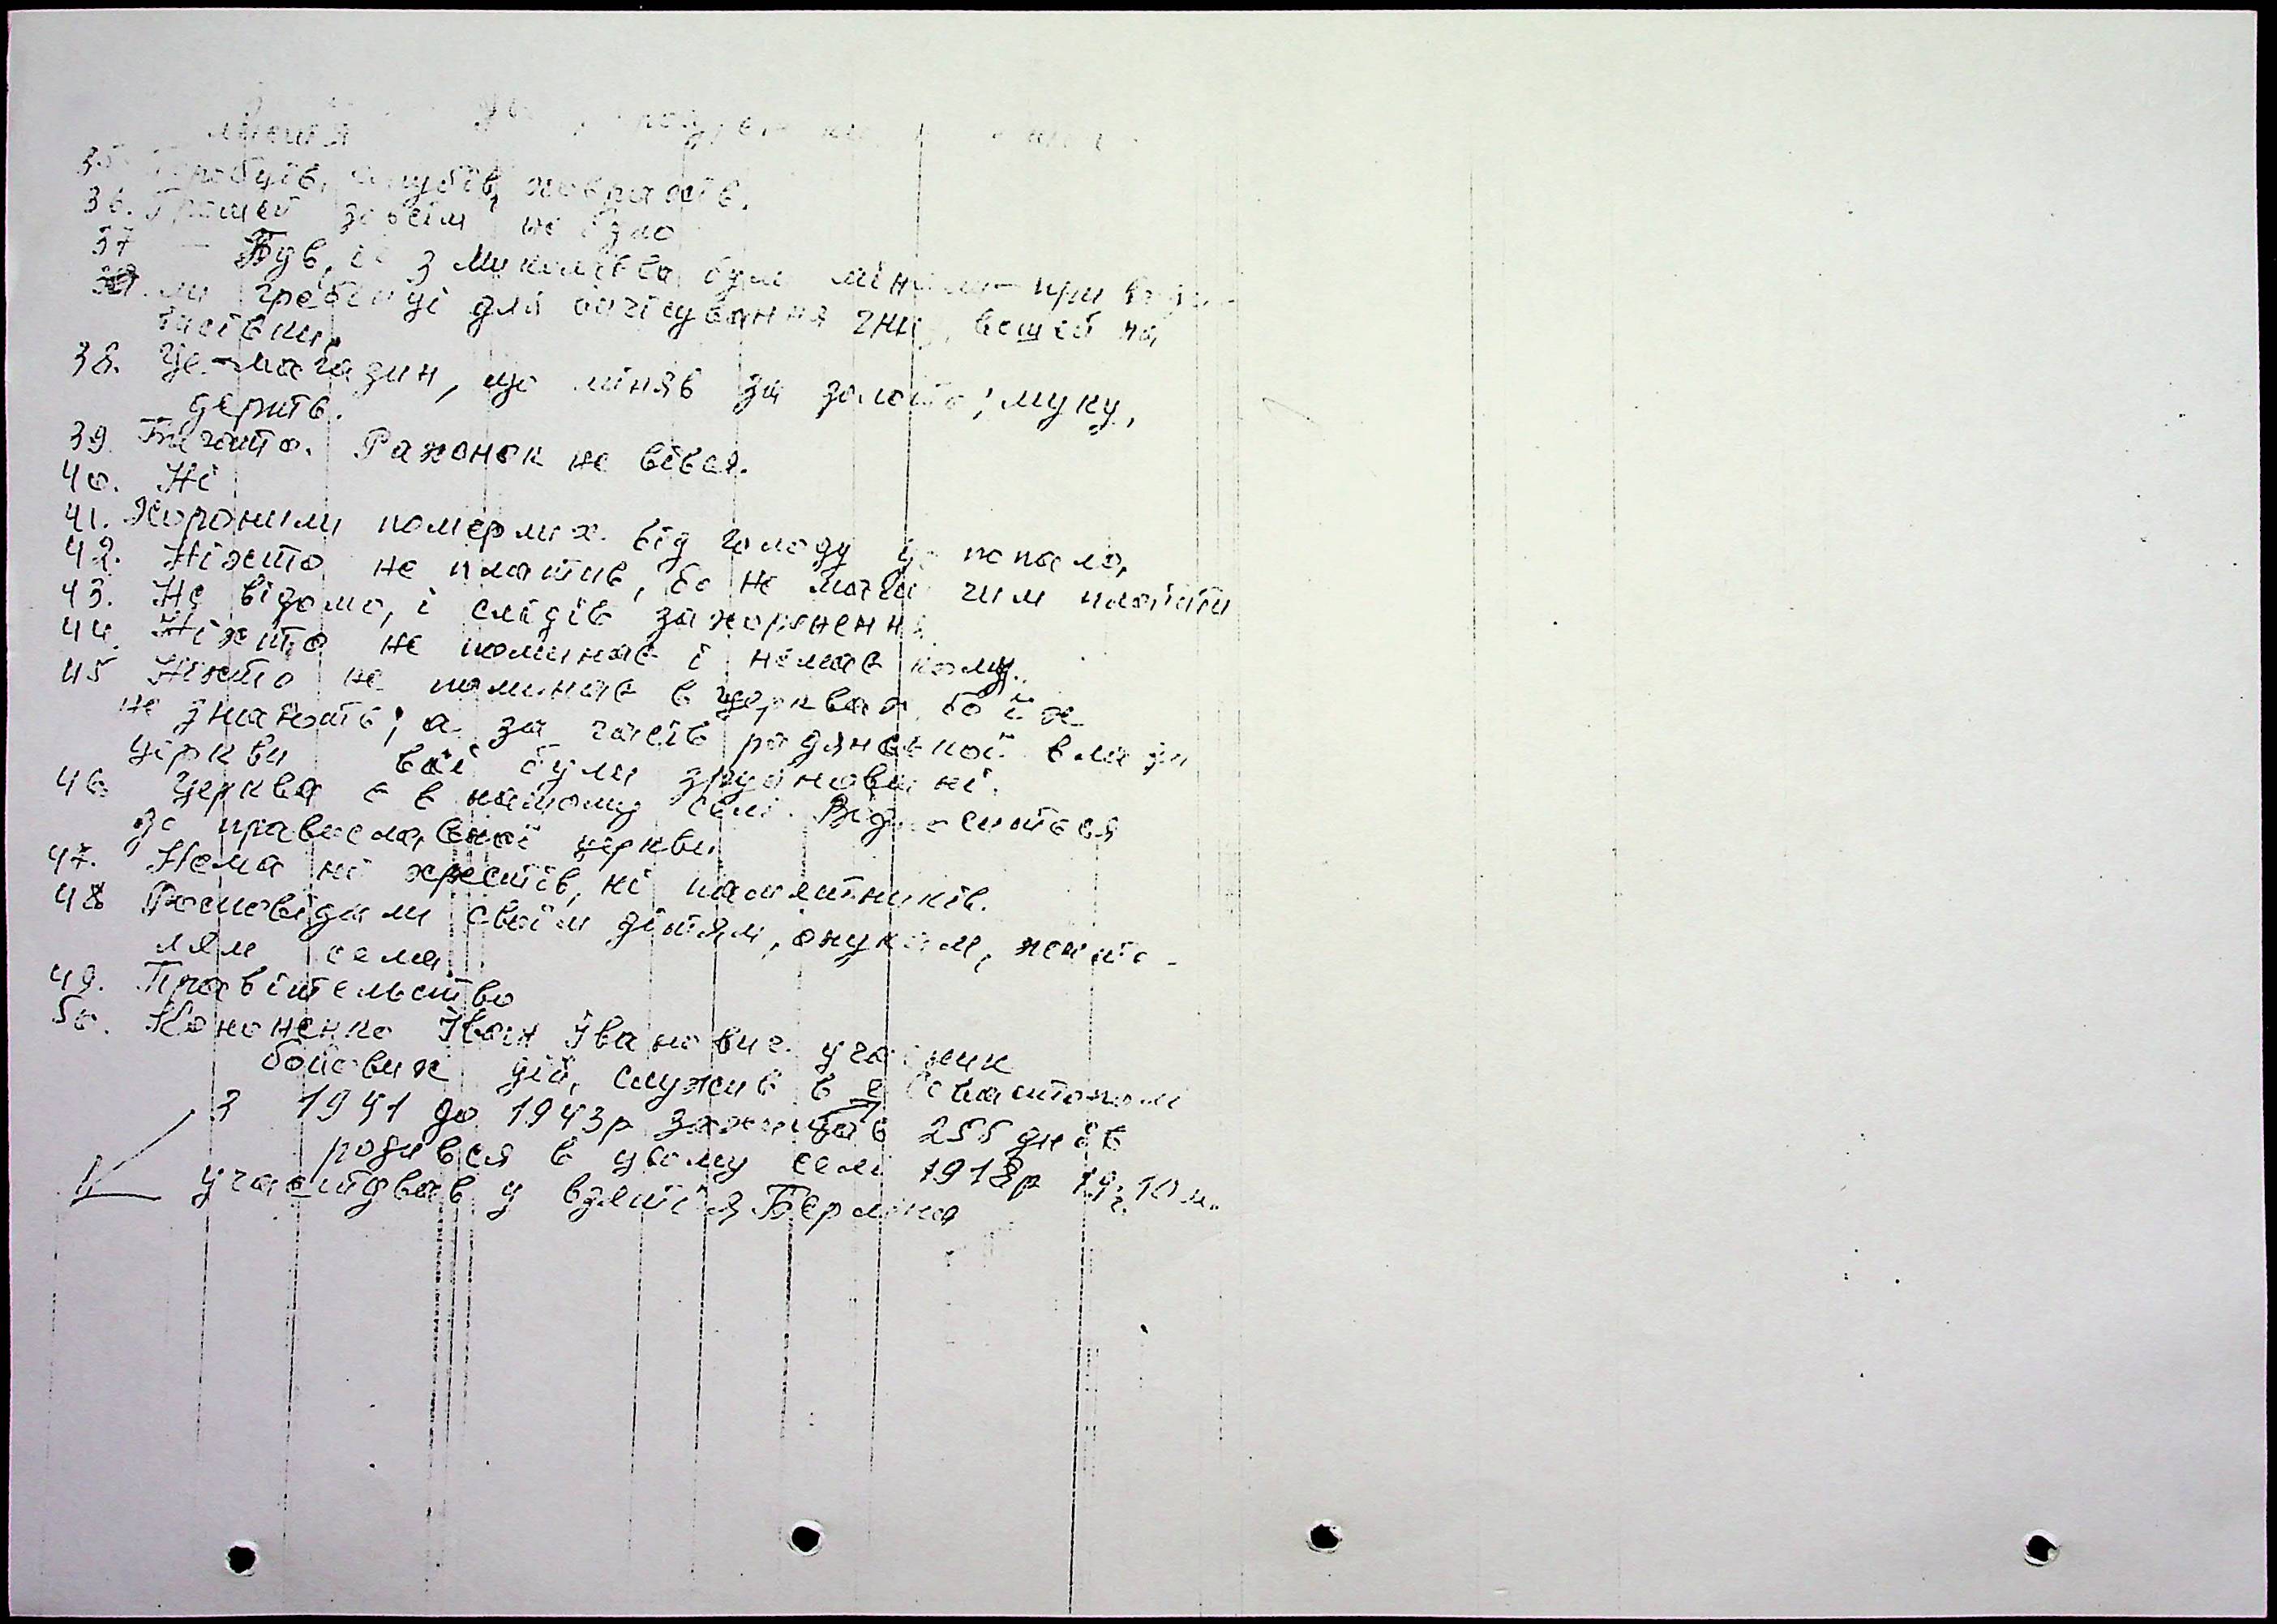 35. Горобців, голубів, ховрахів.
36. Грошей зовсім не було
37 — Був, і з Миколаєва були міняли — при
ли гребінці для вичісування вещей на
38. Це – магазин, що міняв за золото; муку,
дерть.
39 Багато. Ражонок не вівся.
40. Ні
41. Хоронили померлих від голоду де попало,
42. Ніхто не платив, бо не мали чим платити
43. Не відомо, і слідів захоронення
44. Ніхто не поминав і немає кому.
45 Ніхто не поминав в церквах, бо їх
не знають; а за часів радянської влади
церкви всі були зруйновані.
46. Церква є в нашому селі. Відноситься
до православної церкви.
47. Нема ні хрестів, ні памятників.
48 Росповідали своїм дітям, онукам, жите-
лям села.
49. Правітельство
50. Кононенко Іван Іванович учасник
бойових дій, служив в Севастополі
З 1941 до 1943р захищав 255 днів
родився в цьому селі 1918р 10 м.
участвував у взятія Берліна